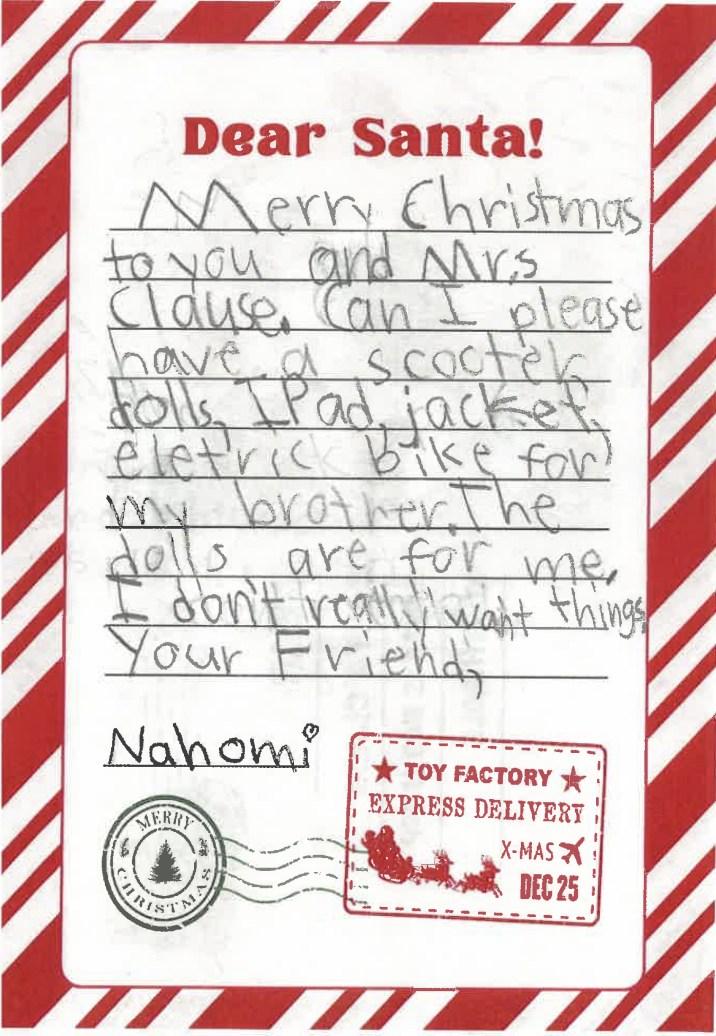 Dear Santa!
Merry Christmas
to you and Mrs
Clause. Can I please
have a scooter,
dolls, IPad, jacket,
eletrick bike for
my brother. The
dolls are for me.
I don't really want things
Your Friend,
Nahomi
TOY FACTORY
EXPRESS DELIVERY
X-MAS
DEC 25
MERRY
CHRISTMAS